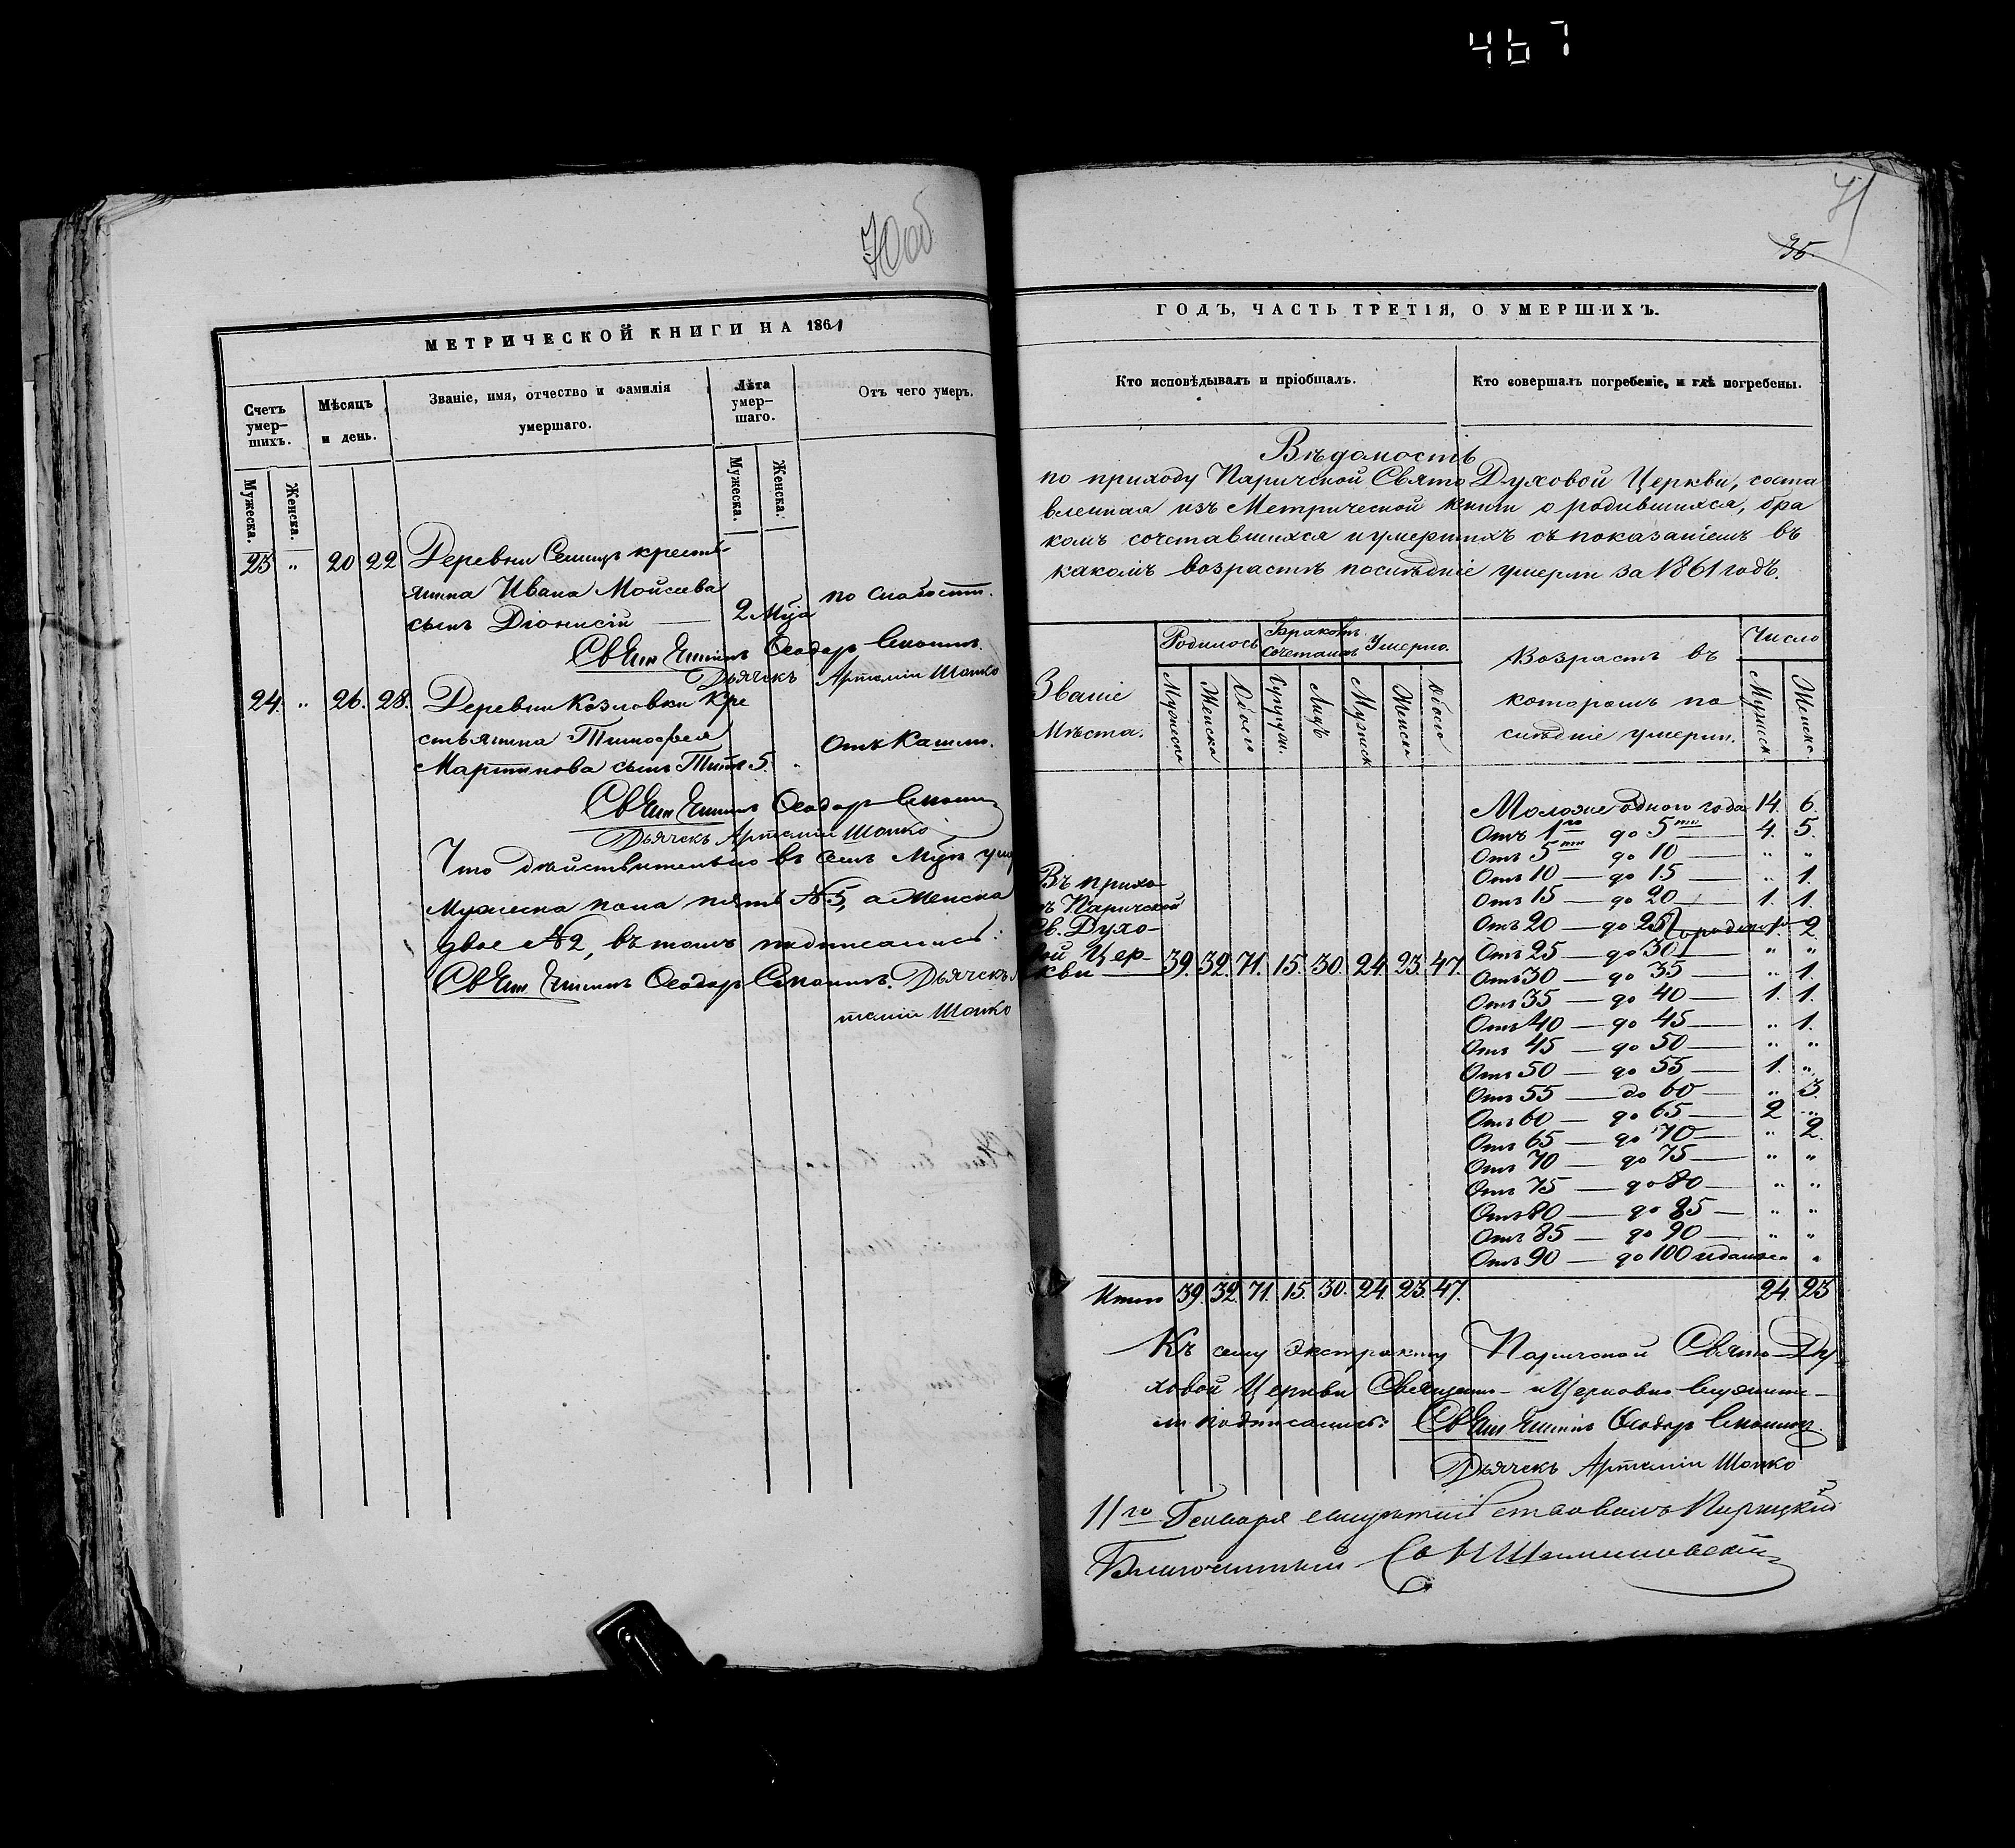 467
70 об
71
35.
МЕТРИЧЕСКОЙ КНИГИ НА 1861
Счетъ умер-шихъ.
Мѣсяцъ и день.
Званіе, имя, отчество и фамилія умершаго.
Лѣта умер-шаго.
Отъ чего умеръ.
Мужеска.
Женска.
Мужеска.
Женска.
23 „ 20 22 Деревни Селищъ кресть-
янина Ивана Мойсеева
сынъ Діонисій — 2 Мца по слабости.
Свящ Ѳеодоръ
Дьячекъ Артемій Шопко
24. „ 26. 28. Деревни Козловки Кре
стьянина Тимоѳея
Мартинова сынъ Титъ 5. „ Отъ Кашлю.
Ѳеодоръ
Дьячекъ Артемій Шопко
Что дѣйствительно въ семъ Мцѣ
Мужеска пола пять №5, а Женска
двое №2, въ томъ подписались:
Ѳеодоръ Дьячекъ
темій Шопко
ГОДЪ, ЧАСТЬ ТРЕТІЯ, О УМЕРШИХЪ.
Кто исповѣдывалъ и пріобщалъ.
Кто совершалъ погребеніе, и гдѣ погребены.
Вѣдомость
по приходу Паричской Свято Духовой Церкви, соста
вленная изъ Метрической книги о родившихся, бра
комъ сочетавшихся и умершихъ съ показаніемъ въ
какомъ возрастѣ послѣдніе умерли за 1861 годъ.
Званіе Мѣста.
Родилось
Бракомъ сочеталось
Умерло.
Возрастъ въ которомъ по слѣдніе умерли.
Число
Мужеска
Женска
Обоего
Супруж.
Лицъ
Мужеск
Женска
Обоего
Мужеск.
Женск.
Моложе одного года 14. 6.
Отъ 1го до 5ти — 4. 5.
Отъ 5ти до 10 — „ „
Отъ 10 — до 15 — „ 1.
Отъ 15 — до 20 — 1. 1.
Отъ 20 — до 25 2
Отъ 25 — до 30 „ „
Отъ 30 — до 35 — „ 1.
Отъ 35 — до 40 — 1. 1.
Отъ 40 — до 45 — „ 1.
Отъ 45 — до 50 — „ „
Отъ 50 — до 55 — 1. „
Отъ 55 — до 60 — „ 3.
Отъ 60 — до 65 — 2 „
Отъ 65 — до 70 — „ 2.
Отъ 70 — до 75 — „ „
Отъ 75 — до 80 — „ „
Отъ 80 — до 85 — „ „
Отъ 85 — до 90 — „ „
Отъ 90 — до 100 и далѣе „ „
Въ прихо-
ѣ Паричской
Св. Духо-
вой Цер-
кви — 39. 32. 71. 15. 30. 24. 23. 47.
Итого 39. 32. 71. 15. 30. 24. 23. 47. 24. 23
Къ сему экстракту Паричской Свято Ду
ховой Церкви Священно- и Церковно Служите-
ли подписались: Ѳеодоръ
Дьячекъ Артемій Шопко
11го Генваря Парицкій
Благочинный